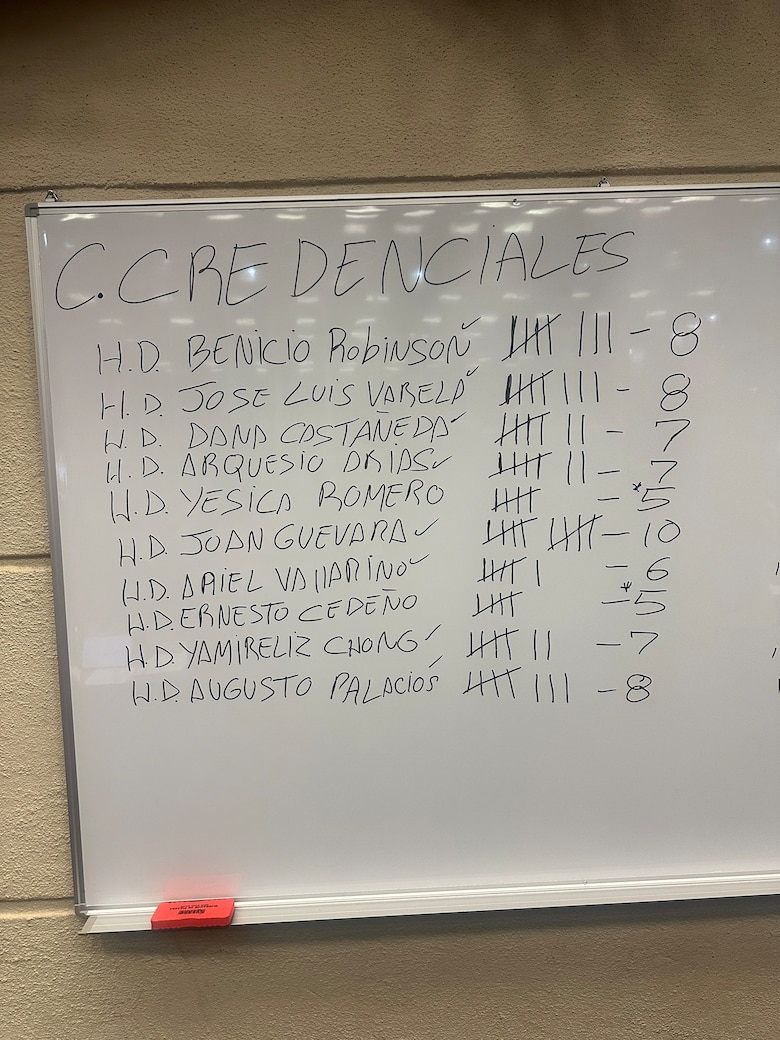 C. CREDENCIALES
H.D. BENICIO RobiNSON ✓ 𝍸 III - 8
H.D. JOSE LUIS VARELA ✓ 𝍸 III - 8
H.D. DANA COSTAÑEDA ✓ 𝍸 II - 7
H.D. ARQUESIO ARIAS ✓ 𝍸 II - 7
H.D. YESICA ROMERO 𝍸 - *5
H.D. JUAN GUEVARA ✓ 𝍸 𝍸 - 10
H.D. ARIEL VALLARINO ✓ 𝍸 I - 6
H.D. ERNESTO CEDEÑO 𝍸 - *5
H.D. YAMIRELIZ CHONG ✓ 𝍸 II - 7
H.D. AUGUSTO PALACIOS ✓ 𝍸 III - 8